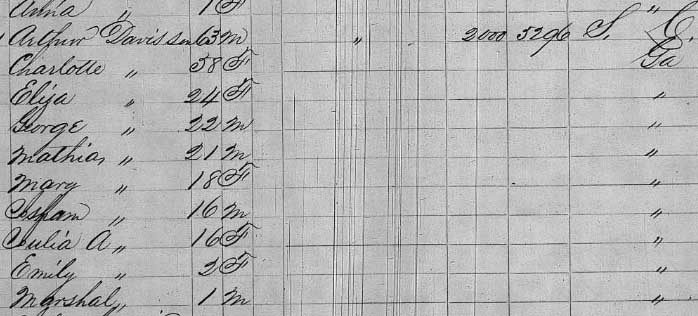 Anna " 1 F "
Arthur Davis Sen 63 M " 2000 5296 S. C.
Charlotte " 58 F Ga
Eliza " 24 F "
George " 22 M "
Mathias " 21 M "
Mary " 18 F "
" 16 M "
Julia A " 16 F "
Emily " 2 F "
Marshal " 1 M "